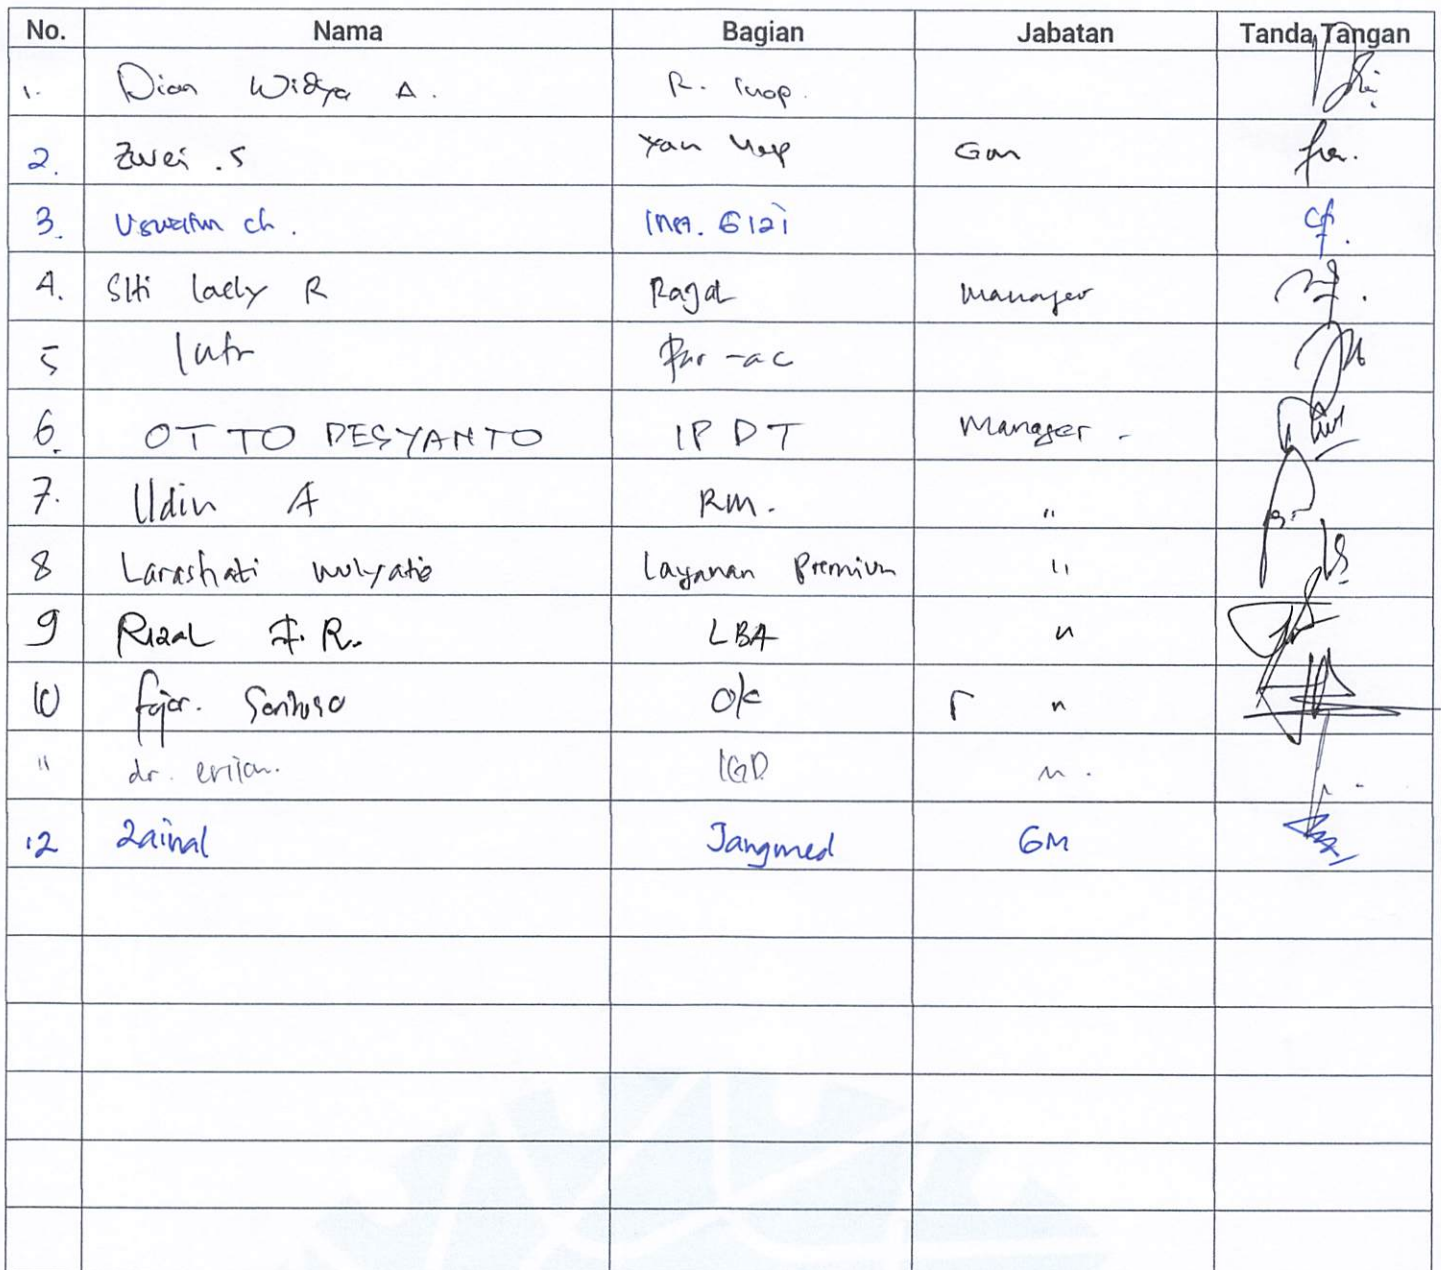 No. Nama Bagian Jabatan Tanda Tangan
1. Dian Widya A. R. Inap.
2. Zwei . S Yan Gm
3. ch . Inst. Gizi
4. Siti Laely R Rajal Manager
5
6. OTTO DESYANTO IPDT Manager -
7. Udin A RM. "
8 Larashati mulyatie Layanan Premium "
9 Rizal F. R. LBA "
10 Fajar. Santoso OK "
11 dr. IGD " .
12 Zainal Jangmed GM